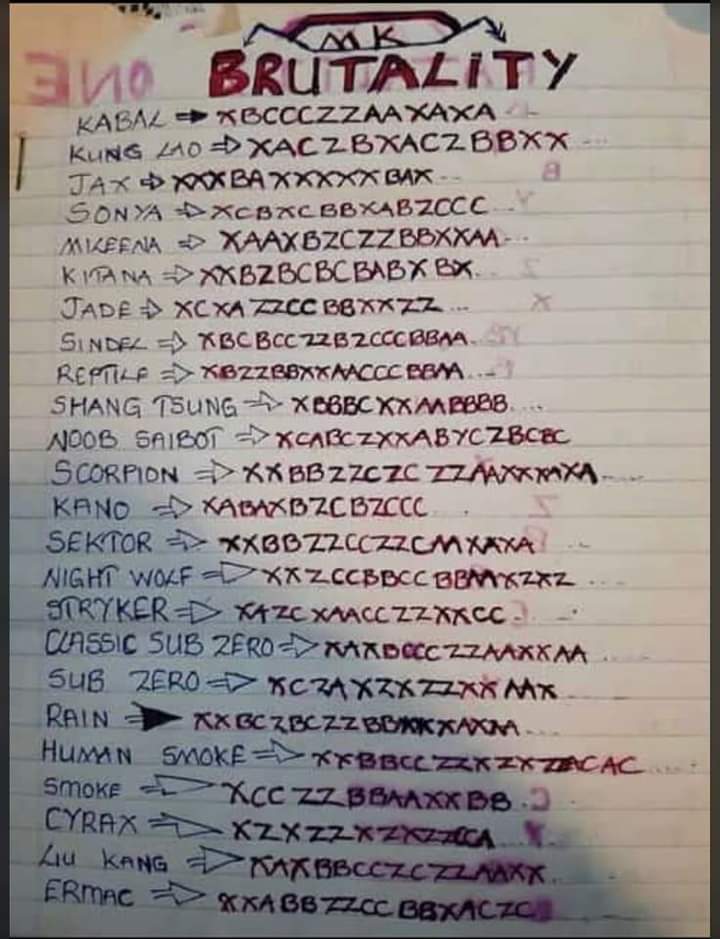 MK
BRUTALITY
KABAL XBCCCZZAAXAXA
KUNG LAO XACZBXACZBBXX
JAX XXXBAXXXXXBAX
SONYA XCBXCBBXABZCCC
MILEENA XAAXBZCZZBBXXAA
KITANA XXBZBCBCBABXBX
JADE XCXAZZCCBBXXZZ
SINDEL XBCBCCZZBZCCCBBAA
REPTILE XBZZBBXXAACCCBBAA
SHANG TSUNG XBBBCXXAABBBB
NOOB SAIBOT XCABCZXXABYCZBCBC
SCORPION XXBBZZCZCZZAAXXXAXA
KANO XABAXBZCBZCCC
SEKTOR XXBBZZCCZZCAAXAXA
NIGHT WOLF XXZCCBBCCBBAAXZXZ
STRYKER XAZCXAACCZZXXCC
CLASSIC SUB ZERO XAXBCCCZZAAXXAA
SUB ZERO XCZAXZXZZXXAAX
RAIN XXBCZBCZZBBXXXAXAA
HUMAN SMOKE XXBBCCZZXZXZZACAC
SMOKE XCCZZBBAAXXBB
CYRAX XZXZZXZXZZCCA
LIU KANG XAXBBCCZCZZAAXX
ERMAC XXABBZZCCBBXACZC